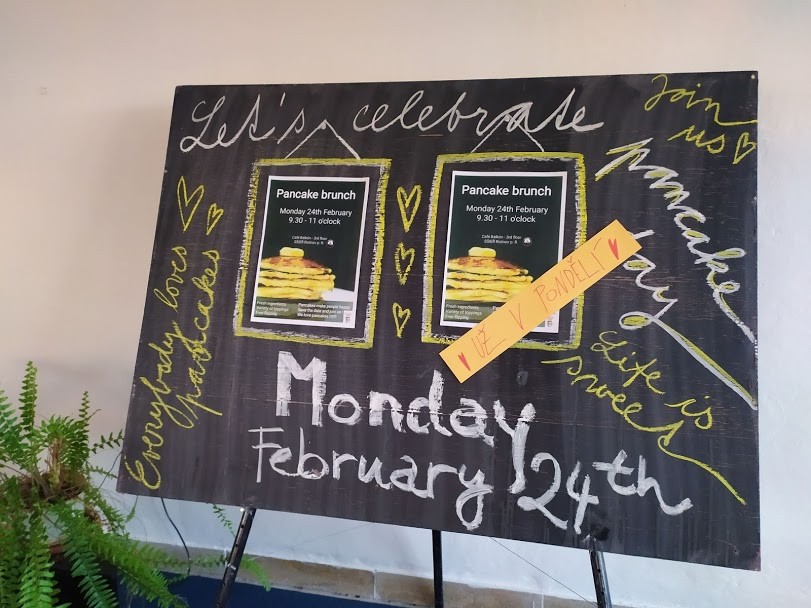 Let's celebrate
Join
us
pancake
day
Everybody loves
pancakes
Pancake brunch
Monday 24th February
9.30 - 11 o'clock
Café Balkon - 3rd floor
Fresh ingredients
Variety of toppings
Free flipping
Pancakes make people happy
Save the date and join us
We love pancakes
Pancake brunch
Monday 24th February
9.30 - 11 o'clock
Café Balkon - 3rd floor
Fresh ingredients
Variety of toppings
Free flipping
UŽ V PONDĚLÍ
Life is
sweet
Monday
February 24th